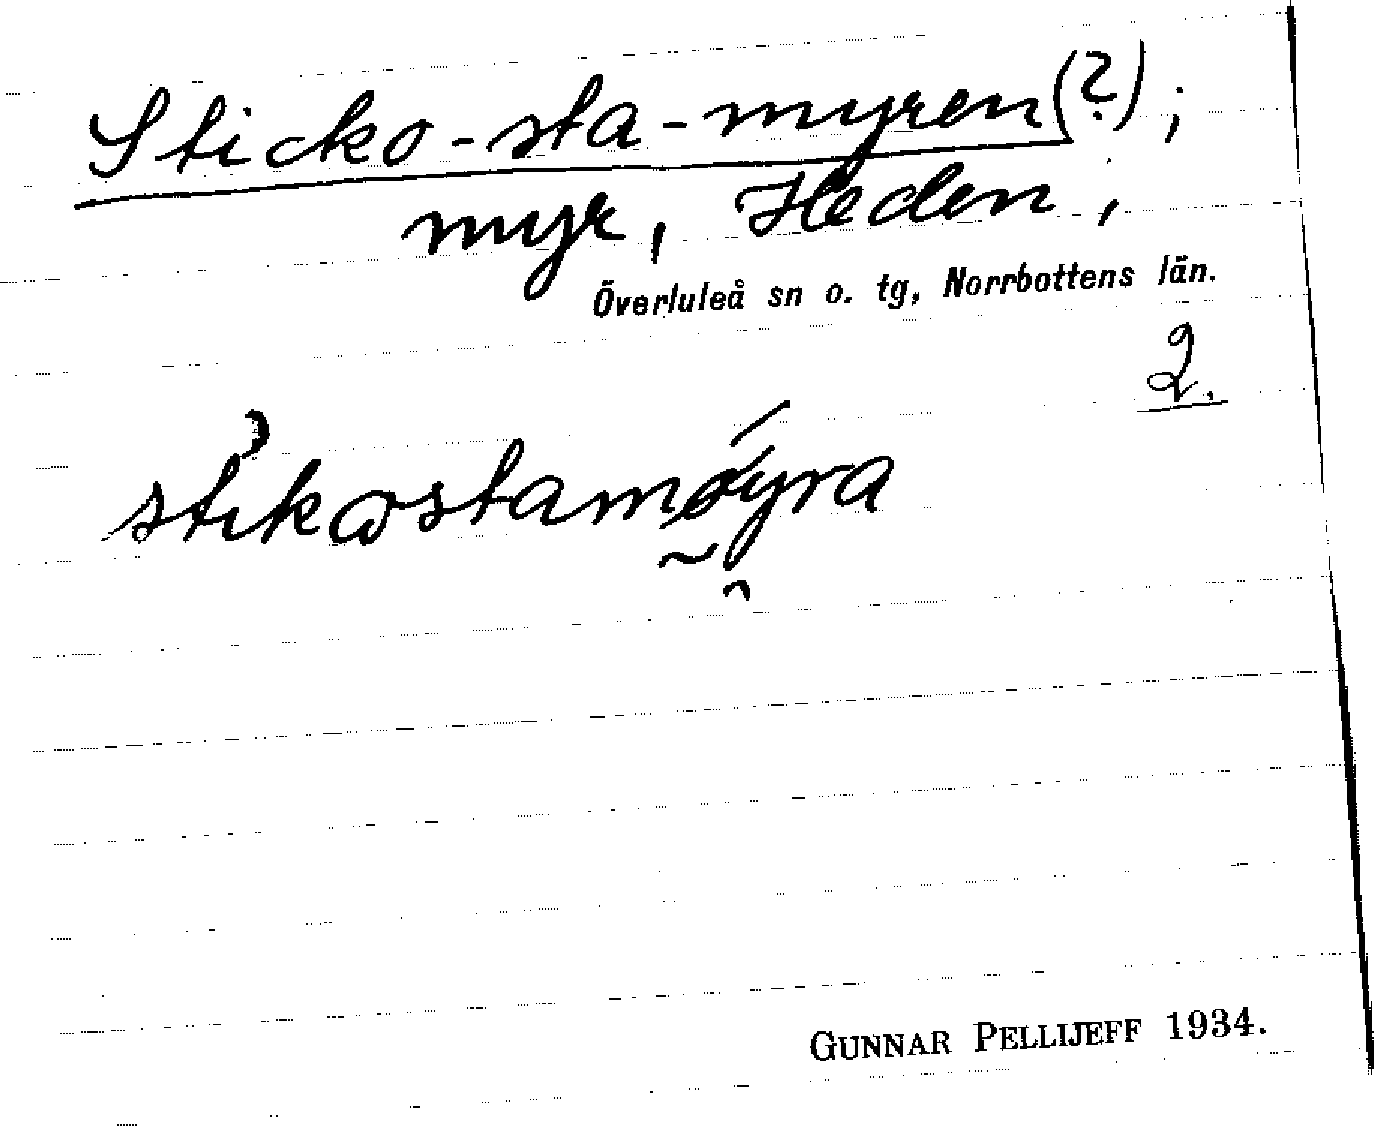 Sticko-sta-myren(?);
myr, Heden,
Överluleå sn o. tg, Norrbottens län.
2.
stikωstamøyra
GUNNAR PELLIJEFF 1934.